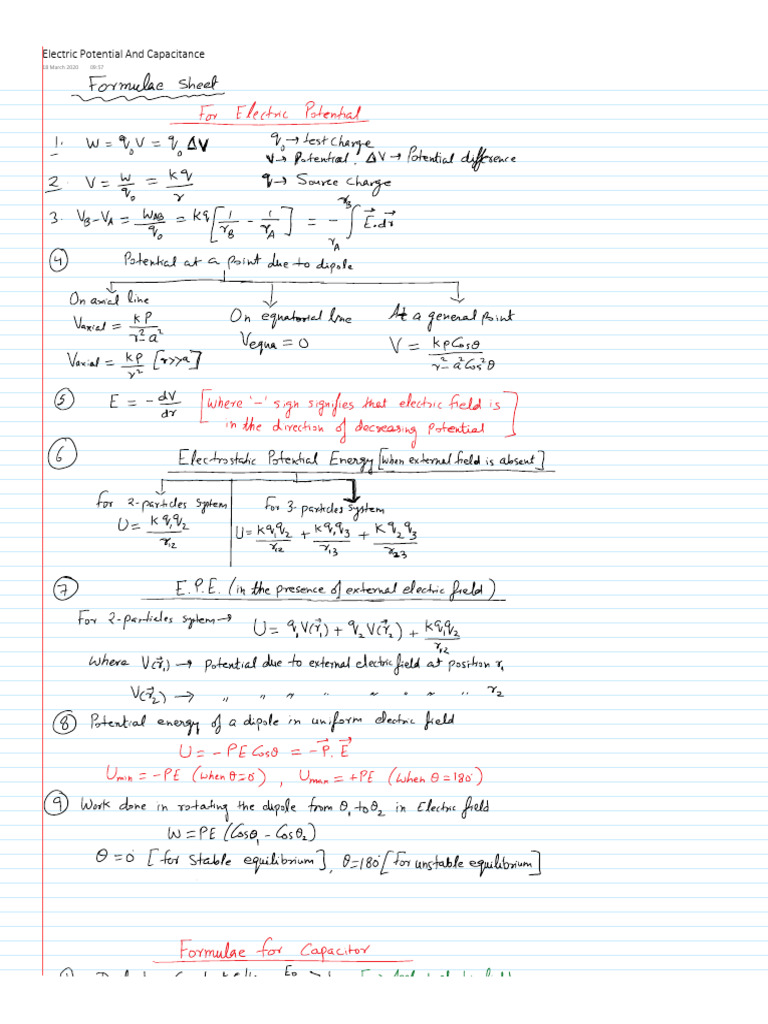 Electric Potential And Capacitance
18 March 2020 08:57
Formulae Sheet
For Electric Potential
1. W = q₀V = q₀ΔV q₀→ test charge
V→ Potential. ΔV→ Potential difference
2. V = W/q₀ = kq/r q→ Source charge
3. V_B-V_A = W_AB/q₀ = kq[1/r_B - 1/r_A] = -∫_{r_A}^{r_B} E⃗.dr⃗
④ Potential at a point due to dipole
On axial line On equatorial line At a general point
V_axial = kP/(r²-a²) V_equa = 0 V = kpCosθ/(r²-a²Cos²θ)
V_axial = kP/r² [r>>a]
⑤ E = -dV/dr [where '-' sign signifies that electric field is
in the direction of decreasing potential]
⑥ Electrostatic Potential Energy [when external field is absent]
For 2-particles system For 3-particles system
U = kq₁q₂/r₁₂ U = kq₁q₂/r₁₂ + kq₁q₃/r₁₃ + kq₂q₃/r₂₃
⑦ E.P.E. (in the presence of external electric field)
For 2-particles system → U = q₁V(r⃗₁) + q₂V(r⃗₂) + kq₁q₂/r₁₂
where V(r⃗₁) → potential due to external electric field at position r₁
V(r⃗₂) → " " " " " " " " r₂
⑧ Potential energy of a dipole in uniform electric field
U = -PECosθ = -P⃗.E⃗
U_min = -PE (when θ=0°), U_max = +PE (when θ=180°)
⑨ Work done in rotating the dipole from θ₁ to θ₂ in Electric field
W = PE (Cosθ₁ - Cosθ₂)
θ=0° [for stable equilibrium], θ=180° [for unstable equilibrium]
Formulae for Capacitor